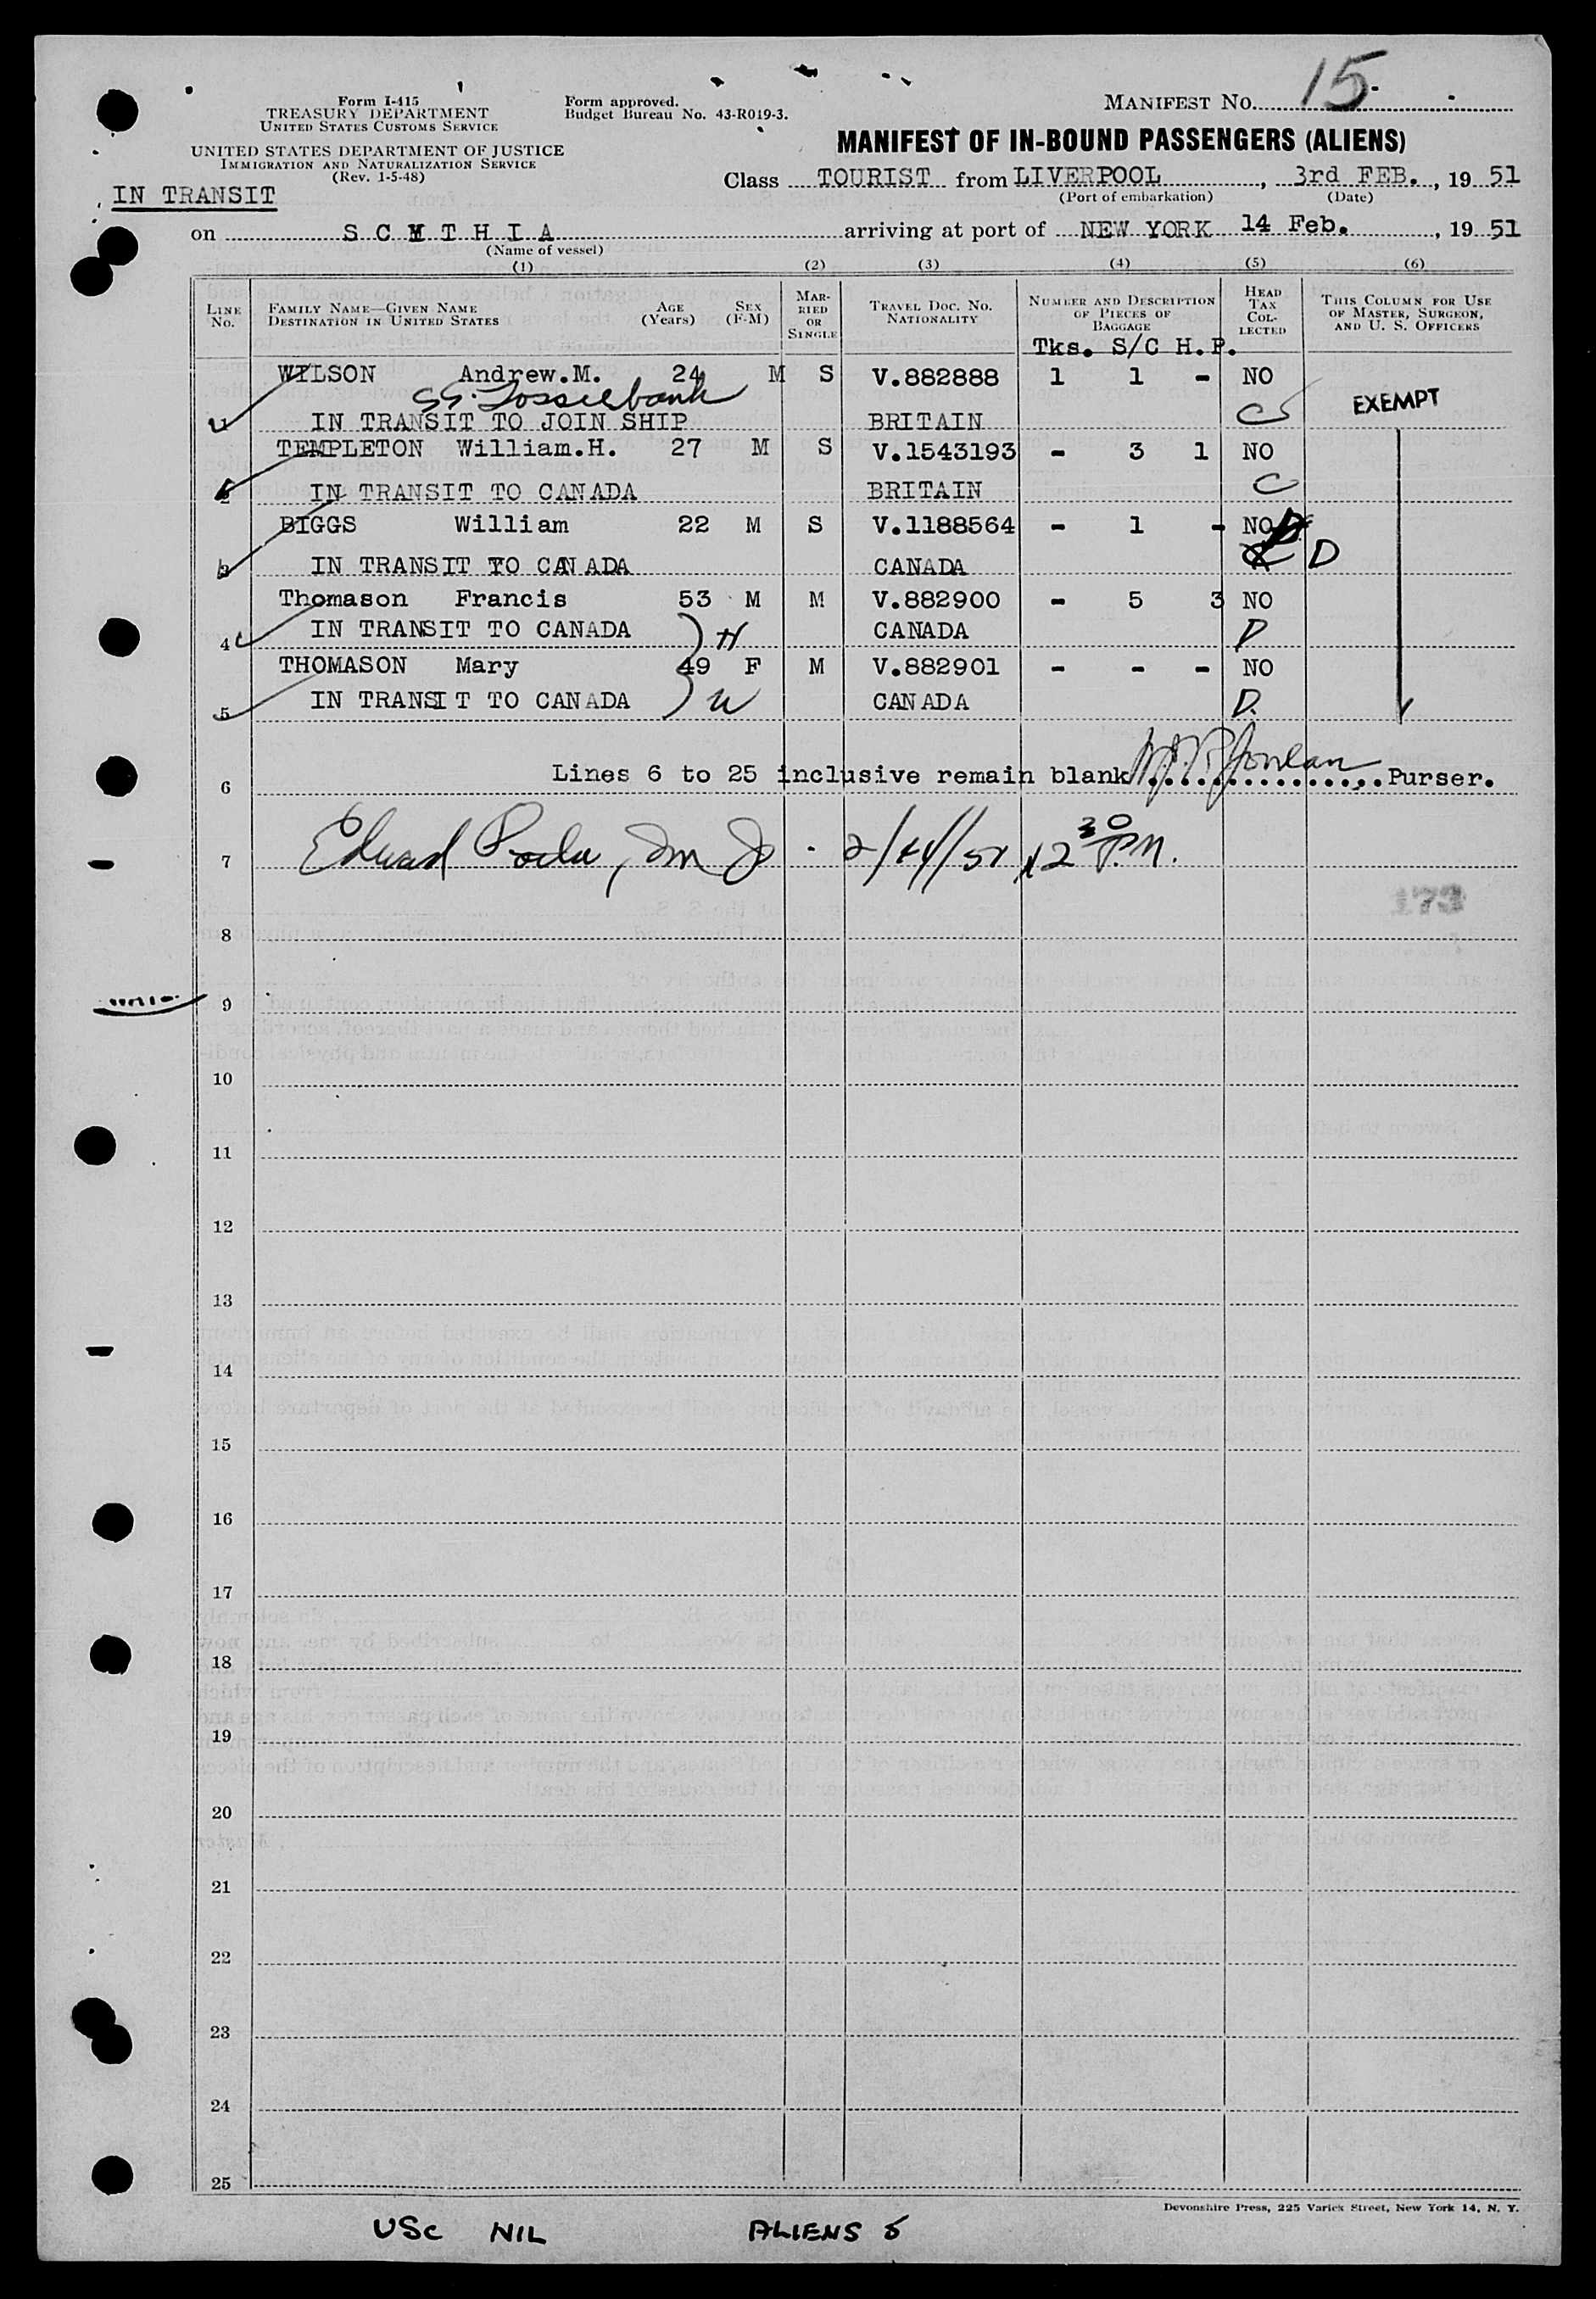 MANIFEST NO. 15
Form I-415
TREASURY DEPARTMENT
UNITED STATES CUSTOMS SERVICE
UNITED STATES DEPARTMENT OF JUSTICE
IMMIGRATION AND NATURALIZATION SERVICE
(Rev. 1-5-48)
Form approved.
Budget Bureau No. 43-R019-3.
MANIFEST OF IN-BOUND PASSENGERS (ALIENS)
IN TRANSIT
Class TOURIST from LIVERPOOL, 3rd FEB., 19 51
(Port of embarkation) (Date)
on SCYTHIA arriving at port of NEW YORK 14 Feb., 19 51
(Name of vessel)
(1) (2) (3) (4) (5) (6)
LINE NO. FAMILY NAME—GIVEN NAME DESTINATION IN UNITED STATES AGE (Years) SEX (F-M) MARRIED OR SINGLE TRAVEL DOC. NO. NATIONALITY NUMBER AND DESCRIPTION OF PIECES OF BAGGAGE HEAD TAX COLLECTED THIS COLUMN FOR USE OF MASTER, SURGEON, AND U. S. OFFICERS
Tks. S/C H.P.
WILSON Andrew.M. 24 M S V.882888 1 1 - NO
EXEMPT
1 IN TRANSIT TO JOIN SHIP BRITAIN C
TEMPLETON William.H. 27 M S V.1543193 - 3 1 NO
2 IN TRANSIT TO CANADA BRITAIN C
BIGGS William 22 M S V.1188564 - 1 - NO
3 IN TRANSIT TO CANADA CANADA D
Thomason Francis 53 M M V.882900 - 5 3 NO
4 IN TRANSIT TO CANADA H CANADA D
THOMASON Mary 49 F M V.882901 - - - NO
5 IN TRANSIT TO CANADA W CANADA D.
6 Lines 6 to 25 inclusive remain blank Purser.
7 Edward 2/14/51 12 30 P.M.
173
8
9
10
11
12
13
14
15
16
17
18
19
20
21
22
23
24
25
Devonshire Press, 225 Varick Street, New York 14, N. Y.
USC NIL ALIENS 5